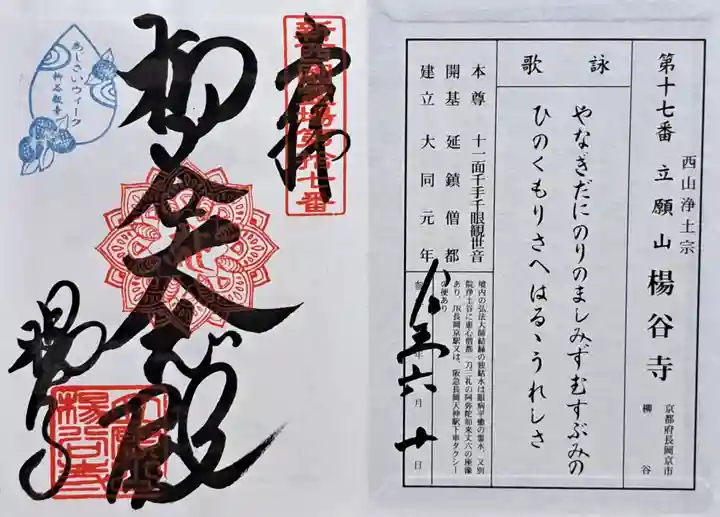 奉拝
新西国霊場第拾七番
あじさいウィーク
柳谷観音
柳谷大悲殿
楊谷寺
第十七番 立願山 楊谷寺
西山浄土宗
京都府長岡京市
柳谷
詠歌
やなぎだにのりのましみずむすぶみの
ひのくもりさへはるゝうれしさ
本尊 十一面千手千眼観世音
開基 延鎮僧都
建立 大同元年
境内の弘法大師結縁の独鈷水は眼病平癒の霊水、又別
院浄土谷に恵心僧都一刀三礼の阿弥陀如来丈六の座像
あり、JR長岡京駅又は、阪急長岡天神駅下車タクシー
の便あり
六
十
年
月
日